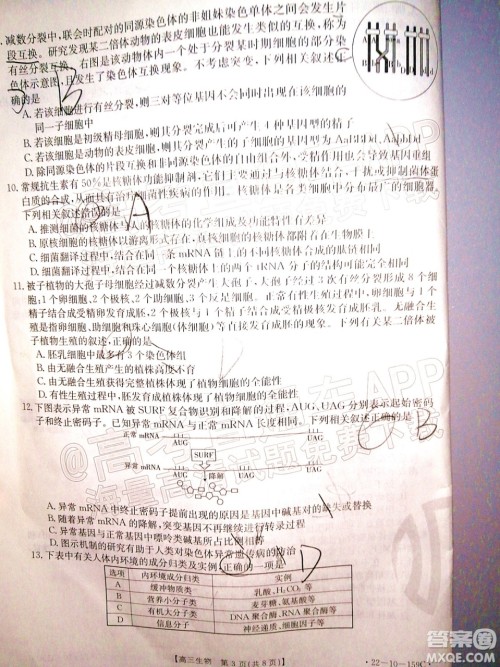 减数分裂中,联会时配对的同源染色体的非姐妹染色单体之间会发生片
段互换。研究发现某二倍体动物的表皮细胞也能发生类似的互换,称为
有丝分裂互换。右图是该动物体内一个处于分裂某时期细胞的部分染
色体示意图,且发生了染色体互换现象。不考虑突变,下列相关叙述正
确的是
B
A. 若该细胞进行有丝分裂,则三对等位基因不会同时出现在该细胞的
同一子细胞中
B. 若该细胞是初级精母细胞,则其分裂完成后可产生4种基因型的精子
C. 若该细胞是动物的表皮细胞,则其分裂产生的子细胞的基因型为
D. 除同源染色体的片段互换和非同源染色体的自由组合外,受精作用也会导致基因重组
10. 常规抗生素有50%是核糖体功能抑制剂,它们主要通过与核糖体结合,干扰或抑制菌体蛋
白质的合成,从而具有治疗细菌性疾病的作用。核糖体是各类细胞中分布最广的细胞器。
下列相关叙述错误的是
A
A. 推测细菌的核糖体与人的核糖体的化学组成及功能特性有差异
B. 原核细胞的核糖体以游离形式存在,真核细胞的核糖体都附着在生物膜上
C. 细菌翻译过程中,结合在同一条mRNA链上的不同核糖体合成的肽链相同
D. 细菌翻译过程中,结合在同一核糖体上的两个tRNA分子的结构可能完全相同
11. 被子植物的大孢子母细胞经过减数分裂产生大孢子,大孢子经过3次有丝分裂形成8个细
胞:1个卵细胞,2个极核,2个助细胞,3个反足细胞。正常有性生殖时,1个卵细胞与1个精
子结合成受精卵发育成胚,2个极核与1个精子结合成受精极核发育成胚乳。无融合生
殖是指卵细胞、助细胞和珠心细胞(体细胞)等直接发育成胚的现象。下列有关某二倍体被
子植物生殖的叙述,正确的是
A. 胚乳细胞中最多有3个染色体组
B. 由无融合生殖产生的植株高度不育
C. 由无融合生殖获得完整植株体现了植物细胞的全能性
D. 有性生殖过程中,胚发育成植株体现了植物细胞的全能性
12. 下图表示异常mRNA被SURF复合物识别和降解的过程,AUG、UAG分别表示起始密码
子和终止密码子。已知异常mRNA与正常mRNA长度相同。下列相关叙述正确的是
B
正常mRNA
AUG UAG
异常mRNA
AUG UAG UAG
SURF
降解
A. 异常mRNA中终止密码子提前出现的原因是基因中碱基对的缺失或替换
B. 随着异常mRNA的降解,突变基因不再继续进行转录过程
C. 异常基因与正常基因中嘌呤类碱基所占比例相等
D. 图示机制的研究有助于人类对染色体异常遗传病的防治
13. 下表中有关人体内环境的成分归类及实例,正确的一项是
D
选项 内环境成分归类 实例
A 缓冲物质类 乳酸、H₂CO₃等
B 营养小分子类 麦芽糖、氨基酸等
C 有机大分子类 DNA聚合酶、RNA聚合酶等
D 信息分子类 神经递质、细胞因子等
【高三生物 第3页(共8页)】
·22-10-159C·
答案圈